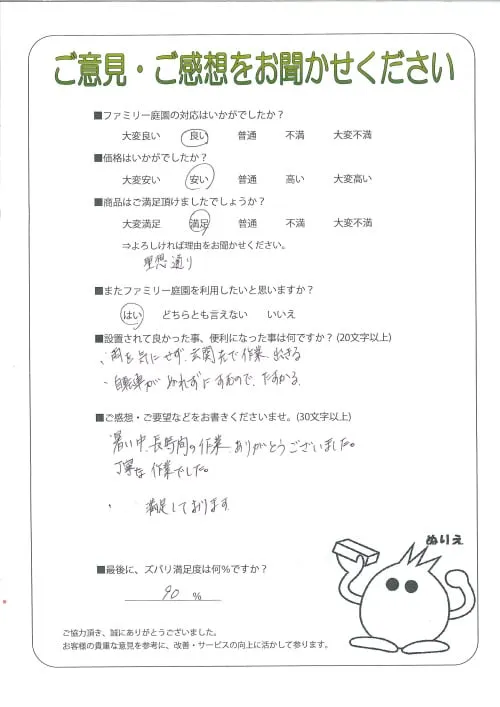 ご意見・ご感想をお聞かせください
■ファミリー庭園の対応はいかがでしたか？
大変良い 良い 普通 不満 大変不満
■価格はいかがでしたか？
大変安い 安い 普通 高い 大変高い
■商品はご満足頂けましたでしょうか？
大変満足 満足 普通 不満 大変不満
⇒よろしければ理由をお聞かせください。
理想通り
■またファミリー庭園を利用したいと思いますか？
はい どちらとも言えない いいえ
■設置されて良かった事、便利になった事は何ですか？(20文字以上)
・雨を気にせず、玄関先で作業出きる
・自転車がぬれずにすむので、たすかる
■ご感想・ご要望などをお書きくださいませ。(30文字以上)
暑い中、長時間の作業、ありがとうございました。
丁寧な作業でした。
・ 満足しております
ぬりえ
■最後に、ズバリ満足度は何％ですか？
90 %
ご協力頂き、誠にありがとうございました。
お客様の貴重な意見を参考に、改善・サービスの向上に活かして参ります。